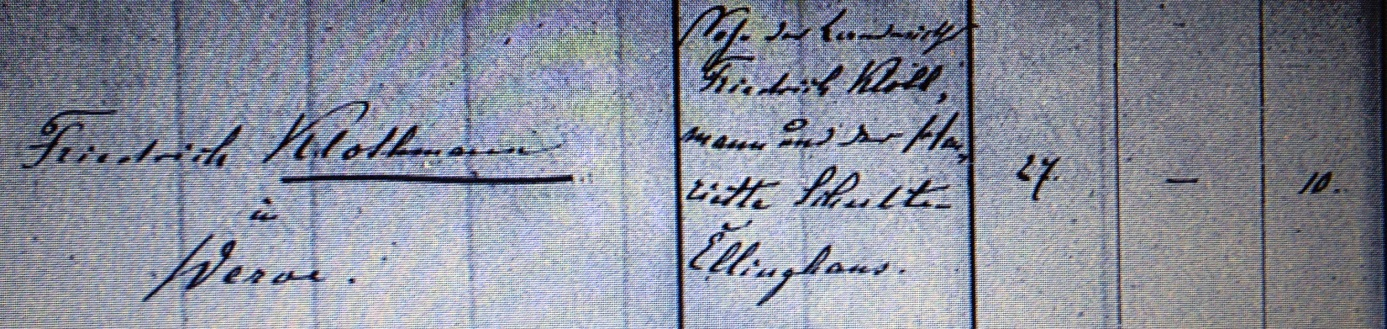 Friedrich Klothmann
in
Werve.
Sohn des Landwirths
Friedrich Kloth,
mann und der Hen,
riette Schulte-
Ellinghaus.
27.
—
10.